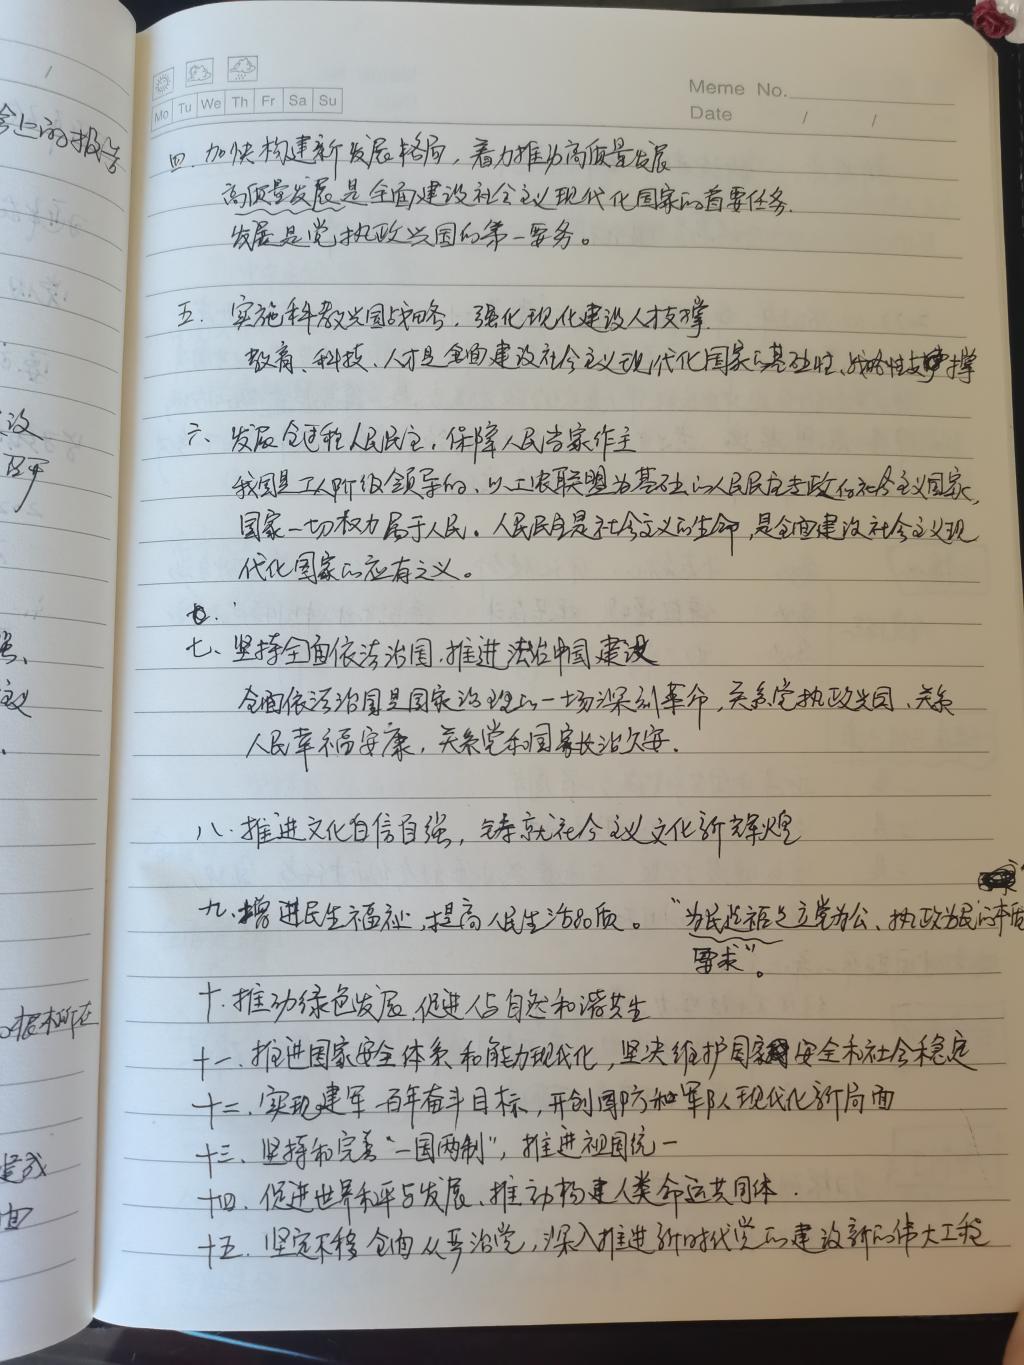 会上的报告
Mo Tu We Th Fr Sa Su
Meme No.
Date / /
四、加快构建新发展格局，着力推动高质量发展
高质量发展是全面建设社会主义现代化国家的首要任务.
发展是党执政兴国的第一要务。
五、实施科教兴国战略，强化现代化建设人才支撑.
教育、科技、人才是全面建设社会主义现代化国家的基础性、战略性支撑
六、发展全过程人民民主，保障人民当家作主
我国是工人阶级领导的、以工农联盟为基础的人民民主专政的社会主义国家，
国家一切权力属于人民。人民民主是社会主义的生命，是全面建设社会主义现
代化国家的应有之义。
七.
七、坚持全面依法治国，推进法治中国建设
全面依法治国是国家治理的一场深刻革命，关系党执政兴国、关系
人民幸福安康，关系党和国家长治久安.
八.推进文化自信自强，铸就社会主义文化新辉煌
九、增进民生福祉，提高人民生活品质。“为民造福是立党为公、执政为民的本质
要求”。
十.推动绿色发展，促进人与自然和谐共生
十一.推进国家安全体系和能力现代化，坚决维护国家安全和社会稳定
十二.实现建军一百年奋斗目标，开创国防和军队现代化新局面
十三.坚持和完善“一国两制”，推进祖国统一
十四.促进世界和平与发展、推动构建人类命运共同体.
十五.坚定不移全面从严治党，深入推进新时代党的建设新的伟大工程